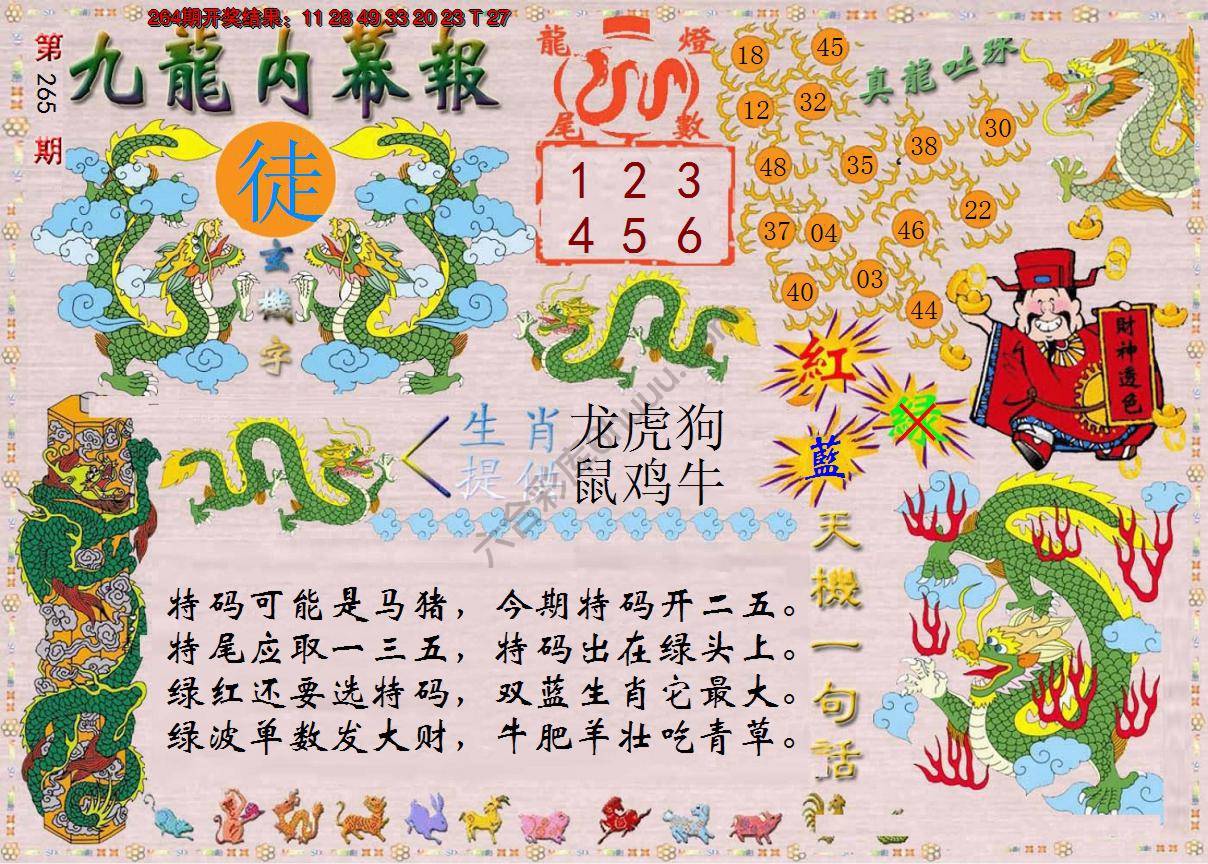 264期开奖结果：11 28 49 33 20 23 T 27
第265期
九龍内幕報
徒
玄機字
龍燈
尾數
1 2 3
4 5 6
真龍吐珠
18 45
12 32
48 35 38 30
37 04 46 22
40 03 44
財神透色
紅
绿
藍
生肖 龙虎狗
提供 鼠鸡牛
特码可能是马猪，今期特码开二五。
特尾应取一三五，特码出在绿头上。
绿红还要选特码，双蓝生肖它最大。
绿波单数发大财，牛肥羊壮吃青草。
天機一句話